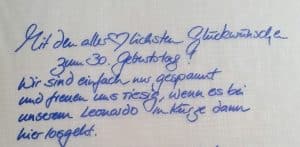 Mit den aller♡lichsten Glückwünschen
zum 30. Geburtstag!
Wir sind einfach nur gespannt
und freuen uns riesig, wenn es bei
unserem Leonardo in Kürze dann
hier losgeht.